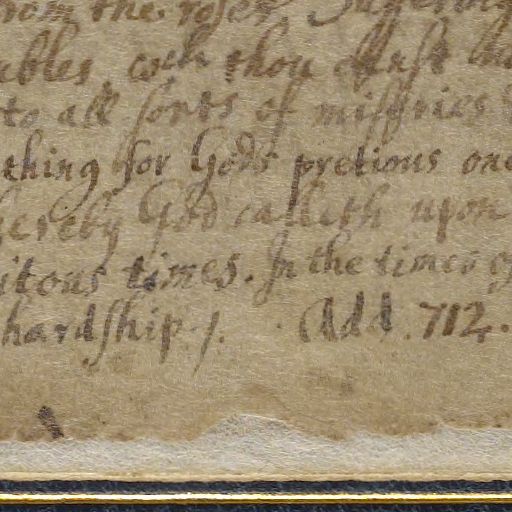 from the roser, Suffering
ables, wch thou must
to all sorts of miseries
thing for Gods pretious one
hereby God calleth upon
itous times. In the times of
hardship. /. Add. 712.